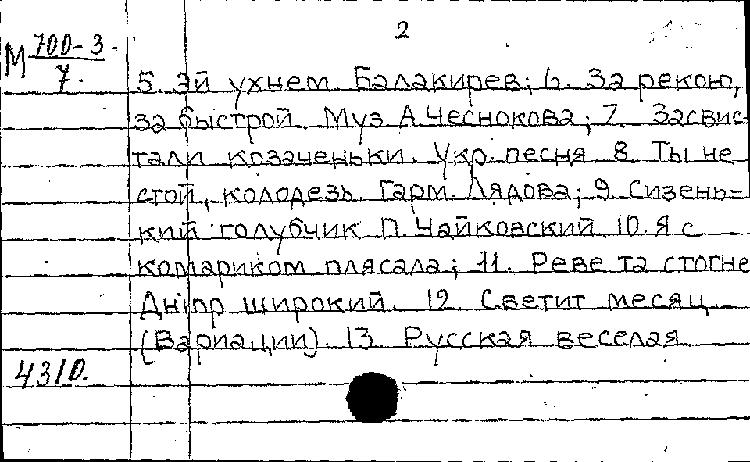 2
М 700-3.
7.
5. Эй ухнем. Балакирев; 6. За рекою,
за быстрой. Муз А.Чеснокова; 7. Засвис-
тали козаченьки. Укр. песня 8. Ты не
стой, колодезь. Гарм. Лядова; 9. Сизень-
кий голубчик П. Чайковский 10. Я с
комариком плясала; 11. Реве та стогне
Днiпр широкий. 12. Светит месяц
(Вариации). 13. Русская веселая
4310.